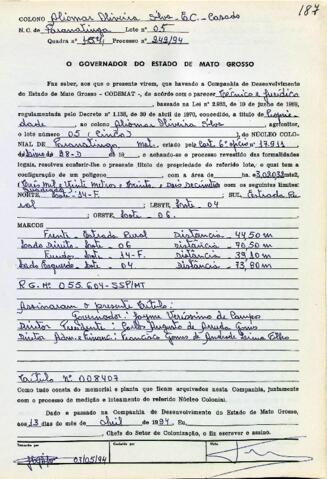 187
COLONO Aliomar Oliveira Silva - E.C. - Casado
N. C. de Paranatinga Lote 05
Quadra nº Processo nº 242/94
O GOVERNADOR DO ESTADO DE MATO GROSSO
Faz saber, aos que o presente virem, que havendo a Companhia de Desenvolvimento
do Estado de Mato Grosso - CODEMAT -, de acordo com parecer Técnico e Jurídico
, baseado na Lei nº 2.933, de 19 de junho de 1969,
regulamentada pelo Decreto nº 1.138, de 30 de abril de 1970, concedido, a título de
ao colono Aliomar Oliveira Silva agricultor,
o lote número 05 (Cinco) do NÚCLEO COLO-
NIAL DE Paranatinga, Mat.
de 19 , e achando-se o processo revestido das formalidades
legais, resolveu conferir-lhe o presente título de propriedade do referido lote, o qual tem a
configuração de um polígono com a área de
com os seguintes limites:
NORTE, Lote - 14-F. SUL, Estrada Ru
ral ; LESTE, Lote - 04
; OESTE, Lote - 06.
MARCOS
Frente Estrada Rural Distância - 44,50 m
Lado Direito Lote - 06 Distância - 70,50 m
Fundos Lote - 14-F. Distância - 39,10 m
Lado Esquerdo Lote - 04 Distância - 73,80 m
R.G. Nº 055.604-SSP/MT
Assinaram o presente Título:
Governador: Jayme Veríssimo de Campos
Diretor Presidente: Carlos Augusto de Arruda Gomes
Diretor Adm. e Financ: Francisco Gomes de Andrade Lima Filho
Título Nº 008407
Como tudo consta do memorial e planta que ficam arquivados nesta Companhia, juntamente
com o processo de medição e loteamento do referido Núcleo Colonial.
Dado e passado na Companhia de Desenvolvimento do Estado de Mato Grosso,
aos 13 dias do mês de abril de 1994, Eu,
, Chefe do Setor de Colonização, o fiz escrever e assino.
Conferido em
Visto
03/05/94